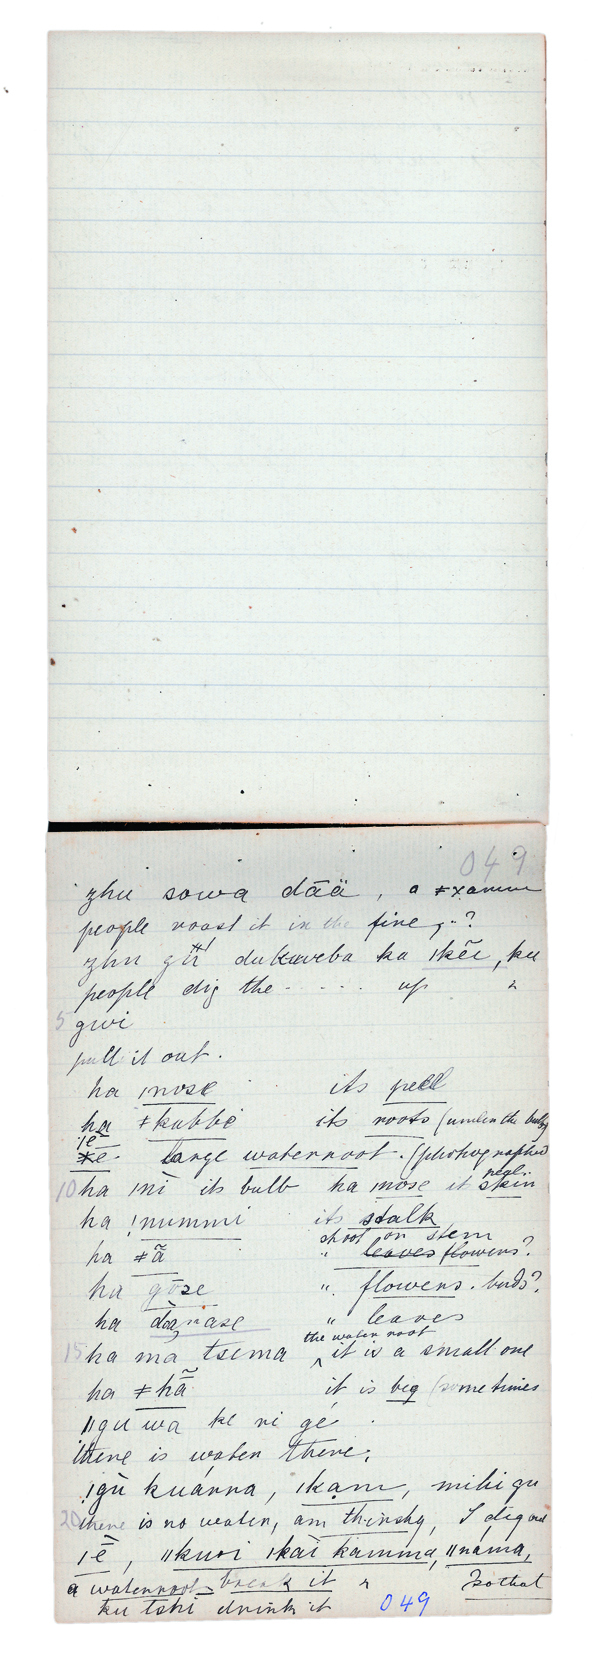 049
zhu sowa dāä, a ǂxamm
people roast it in the fire, ..?
zhu gǔ dukuveba ka ıkẽı, ku
people dig the - . . . up &
5 gwi
pull it out.
ha ınosé its peel
ha ǂkubbe its roots (under the bulb)
ıē large waterroot. (photographed
negl.
10 ha ınì its bulb ha mose it skin
ha !nummi its stalk
shoot on stem
ha ǂã " leaves flowers?
ha gōse " flowers. buds?
ha dạ̀nase " leaves
the water root
15 ha ma tsema it is a small one
ha ǂhã̄ it is big (sometimes
ǁgu wa ke ne gé
there is water there.
!gù kuánna, ıkạm, mihi gu
20 there is no water, am thirsty, I dig out
ıē, ǁkuoi ıkaì kamma, ǁnama,
a waterroot break it & so that
ku tshi drink it 049